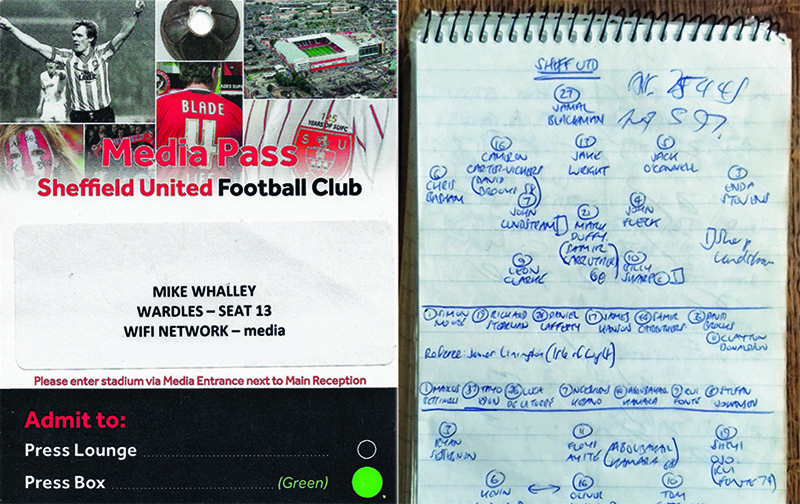 BLADE
4
125
YEARS OF SUFC
S U
Media Pass
Sheffield United Football Club
MIKE WHALLEY
WARDLES – SEAT 13
WIFI NETWORK – media
Please enter stadium via Media Entrance next to Main Reception
Admit to:
Press Lounge
Press Box (Green)
SHEFF UTD
27
JAMAL
BLACKMAN
16 13 5
CAMERON JAKE JACK
CARTER-VICKERS WRIGHT O'CONNELL
6 3
CHRIS ENDA
BASHAM STEVENS
(DAVID
BROOKS
7 21 4
JOHN MARK JOHN
LUNDSTRAM DUFFY FLECK
(SAMIR
CARRUTHERS
68
9 10
LEON BILLY
CLARKE SHARP
Sharp
Lundstram
1 SIMON 19 RICHARD DANIEL 17 JAMES SAMIR DAVID
MOORE STEARMAN LAFFERTY HANSON CARRUTHERS BROOKS
11 CLAYTON
DONALDSON
Referee: James Linington (Isle of Wight)
1 MARCUS TAYO LUCA 7 NEESKENS ABOUBAKAR 9 RUI STEFAN
BETTINELLI EDUN DE LA TORRE KEBANO KAMARA FONTE JOHANSEN
3 11 19
RYAN FLOYD SHEYI
SESSEGNON AYITE OJO
(ABOUBAKAR
KAMARA
RUI
FONTE 79
6 16 10
KEVIN OLIVER TOM